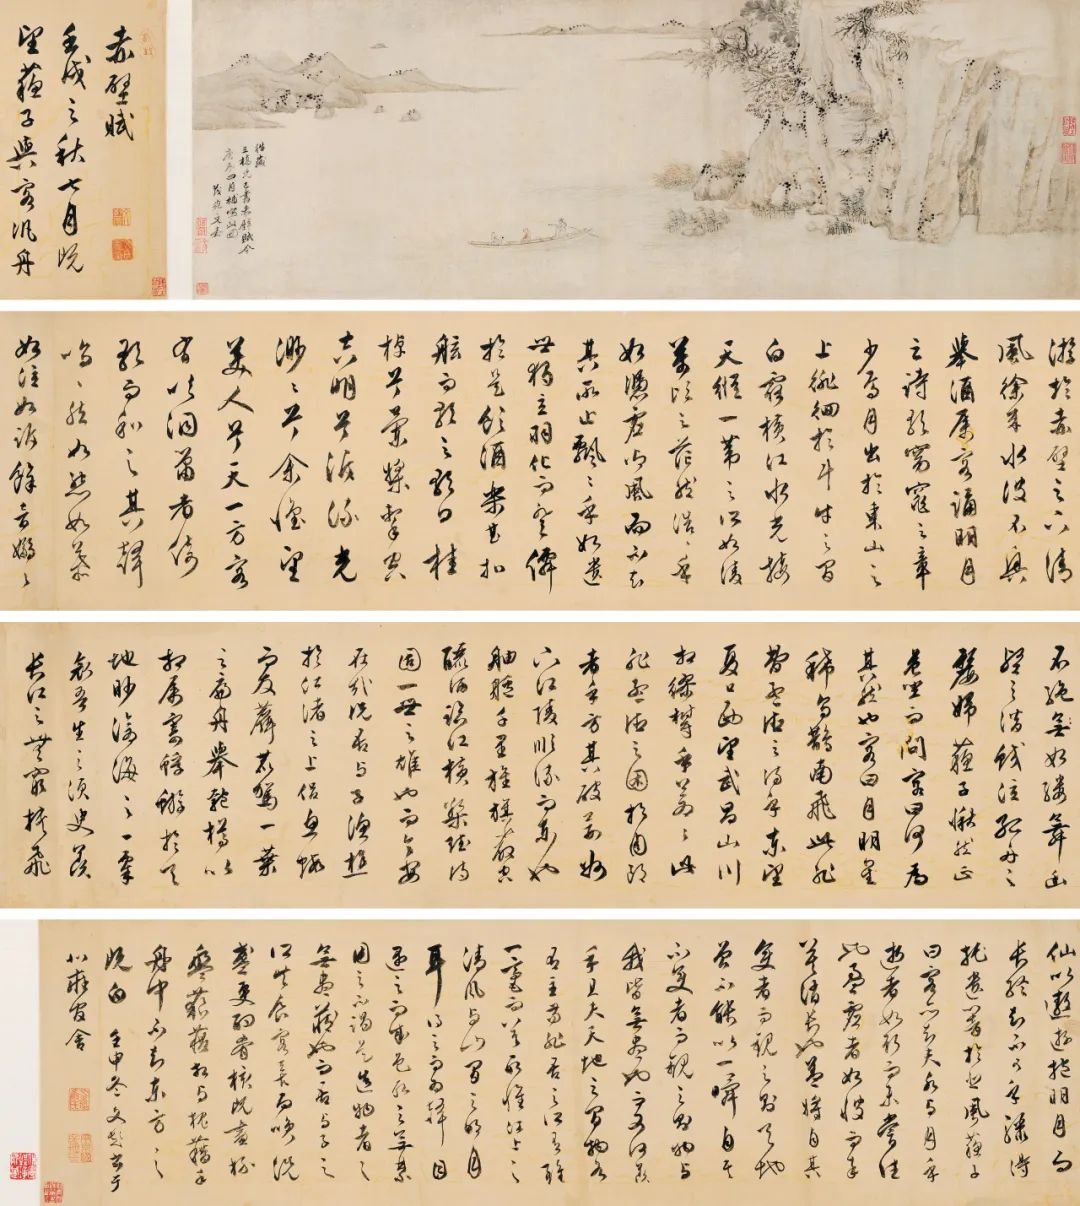 三橋先兄書赤壁賦今
庚辰四月補寫此圖
茂苑文嘉
赤壁賦
壬戌之秋七月既
望蘓子與客汎舟
游於赤壁之下清
風徐来水波不興
舉酒属客誦明月
之詩歌窈窕之章
少焉月出於東山之
上徘徊於斗牛之間
白露横江水光接
天縱一葦之所如凌
萬頃之茫然浩〻乎
如馮虚御風而不知
其所止飄〻乎如遺
世獨立羽化而登僊
於是飲酒樂甚扣
舷而歌之歌曰桂
棹兮蘭槳擊空
明兮泝流光
渺〻兮余懷望
美人兮天一方客
有吹洞簫者倚
歌而和之其聲
嗚〻然如怨如慕
如泣如訴餘音嫋〻
不絶如縷舞幽
壑之潛蛟泣孤舟之
嫠婦蘓子愀然正
危坐而問客曰何為
其然也客曰月明星
稀烏鵲南飛此非
曹孟德之詩乎東望
夏口西望武昌山川
相繆鬱乎蒼〻此
非孟德之困於周郎
者乎方其破荊州
下江陵順流而東也
舳艫千里旌旗蔽空
釃酒臨江横槊賦詩
固一世之雄也而今安
在哉況吾與子漁樵
於江渚之上侣魚蝦
而友麋鹿駕一葉
之扁舟舉匏樽以
相属寄蜉蝣於天
地眇滄海之一粟
哀吾生之須臾羡
長江之無窮挾飛
仙以遨遊抱明月而
長終知不可乎驟得
託遺響於悲風蘓子
曰客亦知夫水與月乎
逝者如斯而未嘗往
也盈虚者如彼而卒
莫消長也蓋將自其
變者而觀之則天地
曾不能以一瞬自其
不變者而觀之則物與
我皆無盡也而又何羡
乎且夫天地之間物各
有主苟非吾之所有雖
一毫而莫取惟江上之
清風與山間之明月
耳得之而為聲目
遇之而成色取之無禁
用之不竭是造物者之
無盡藏也而吾與子之
所共食客喜而笑洗
盞更酌肴核既盡杯
盤狼藉相與枕藉乎
舟中不知東方之
既白 壬申冬文彭書于
舍